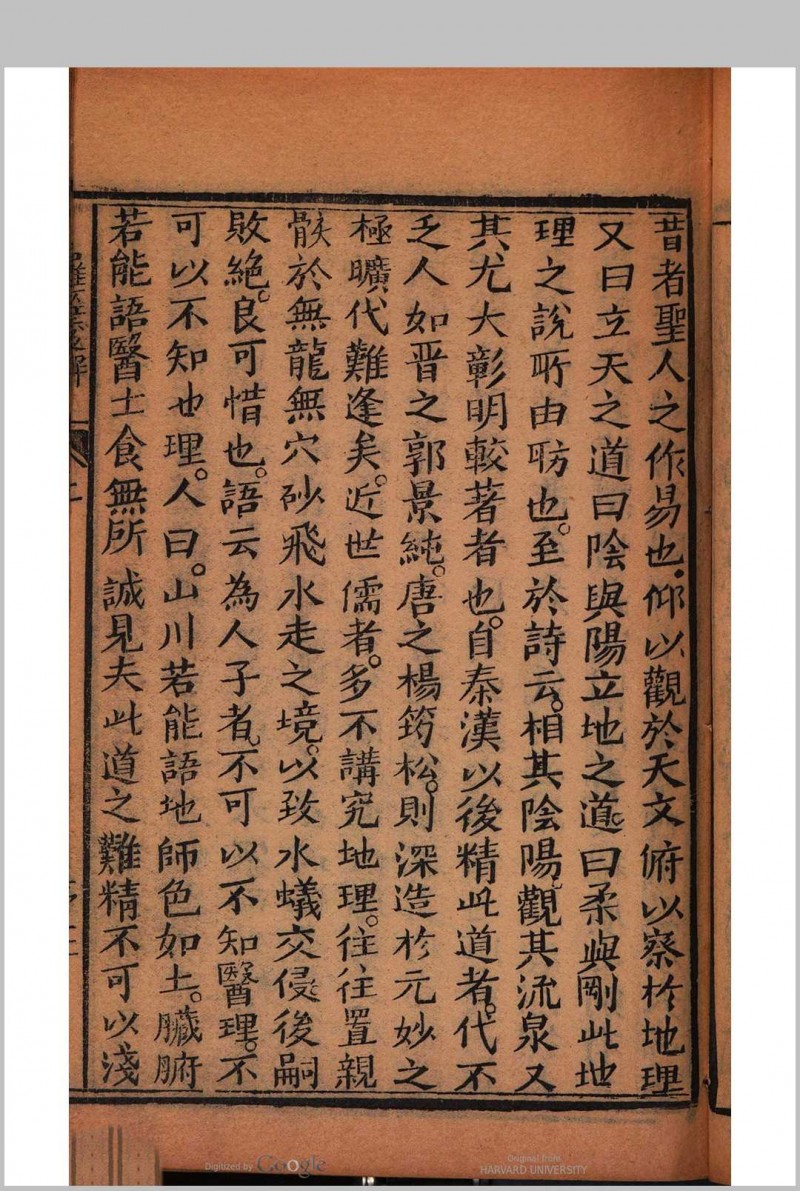 昔者聖人之作易也仰以觀於天文俯以察於地理
又曰立天之道曰陰與陽立地之道曰柔與剛此地
理之說所由昉也。至於詩云。相其陰陽觀其流泉又
其尤大彰明較著者也。自秦漢以後精此道者。代不
乏人如晋之郭景純。唐之楊筠松。則深造於元妙之
極曠代難逢矣。近世儒者。多不講究地理。往往置親
骸於無龍無穴砂飛水走之境。以致水蟻交侵後嗣
敗絕。良可惜也。語云為人子者不可以不知醫理。不
可以不知地理。人曰。山川若能語地師色如土。臟腑
若能語醫士食無所誠見夫此道之難精不可以淺
Digitized by Google
Original from
HARVARD UNIVERSITY